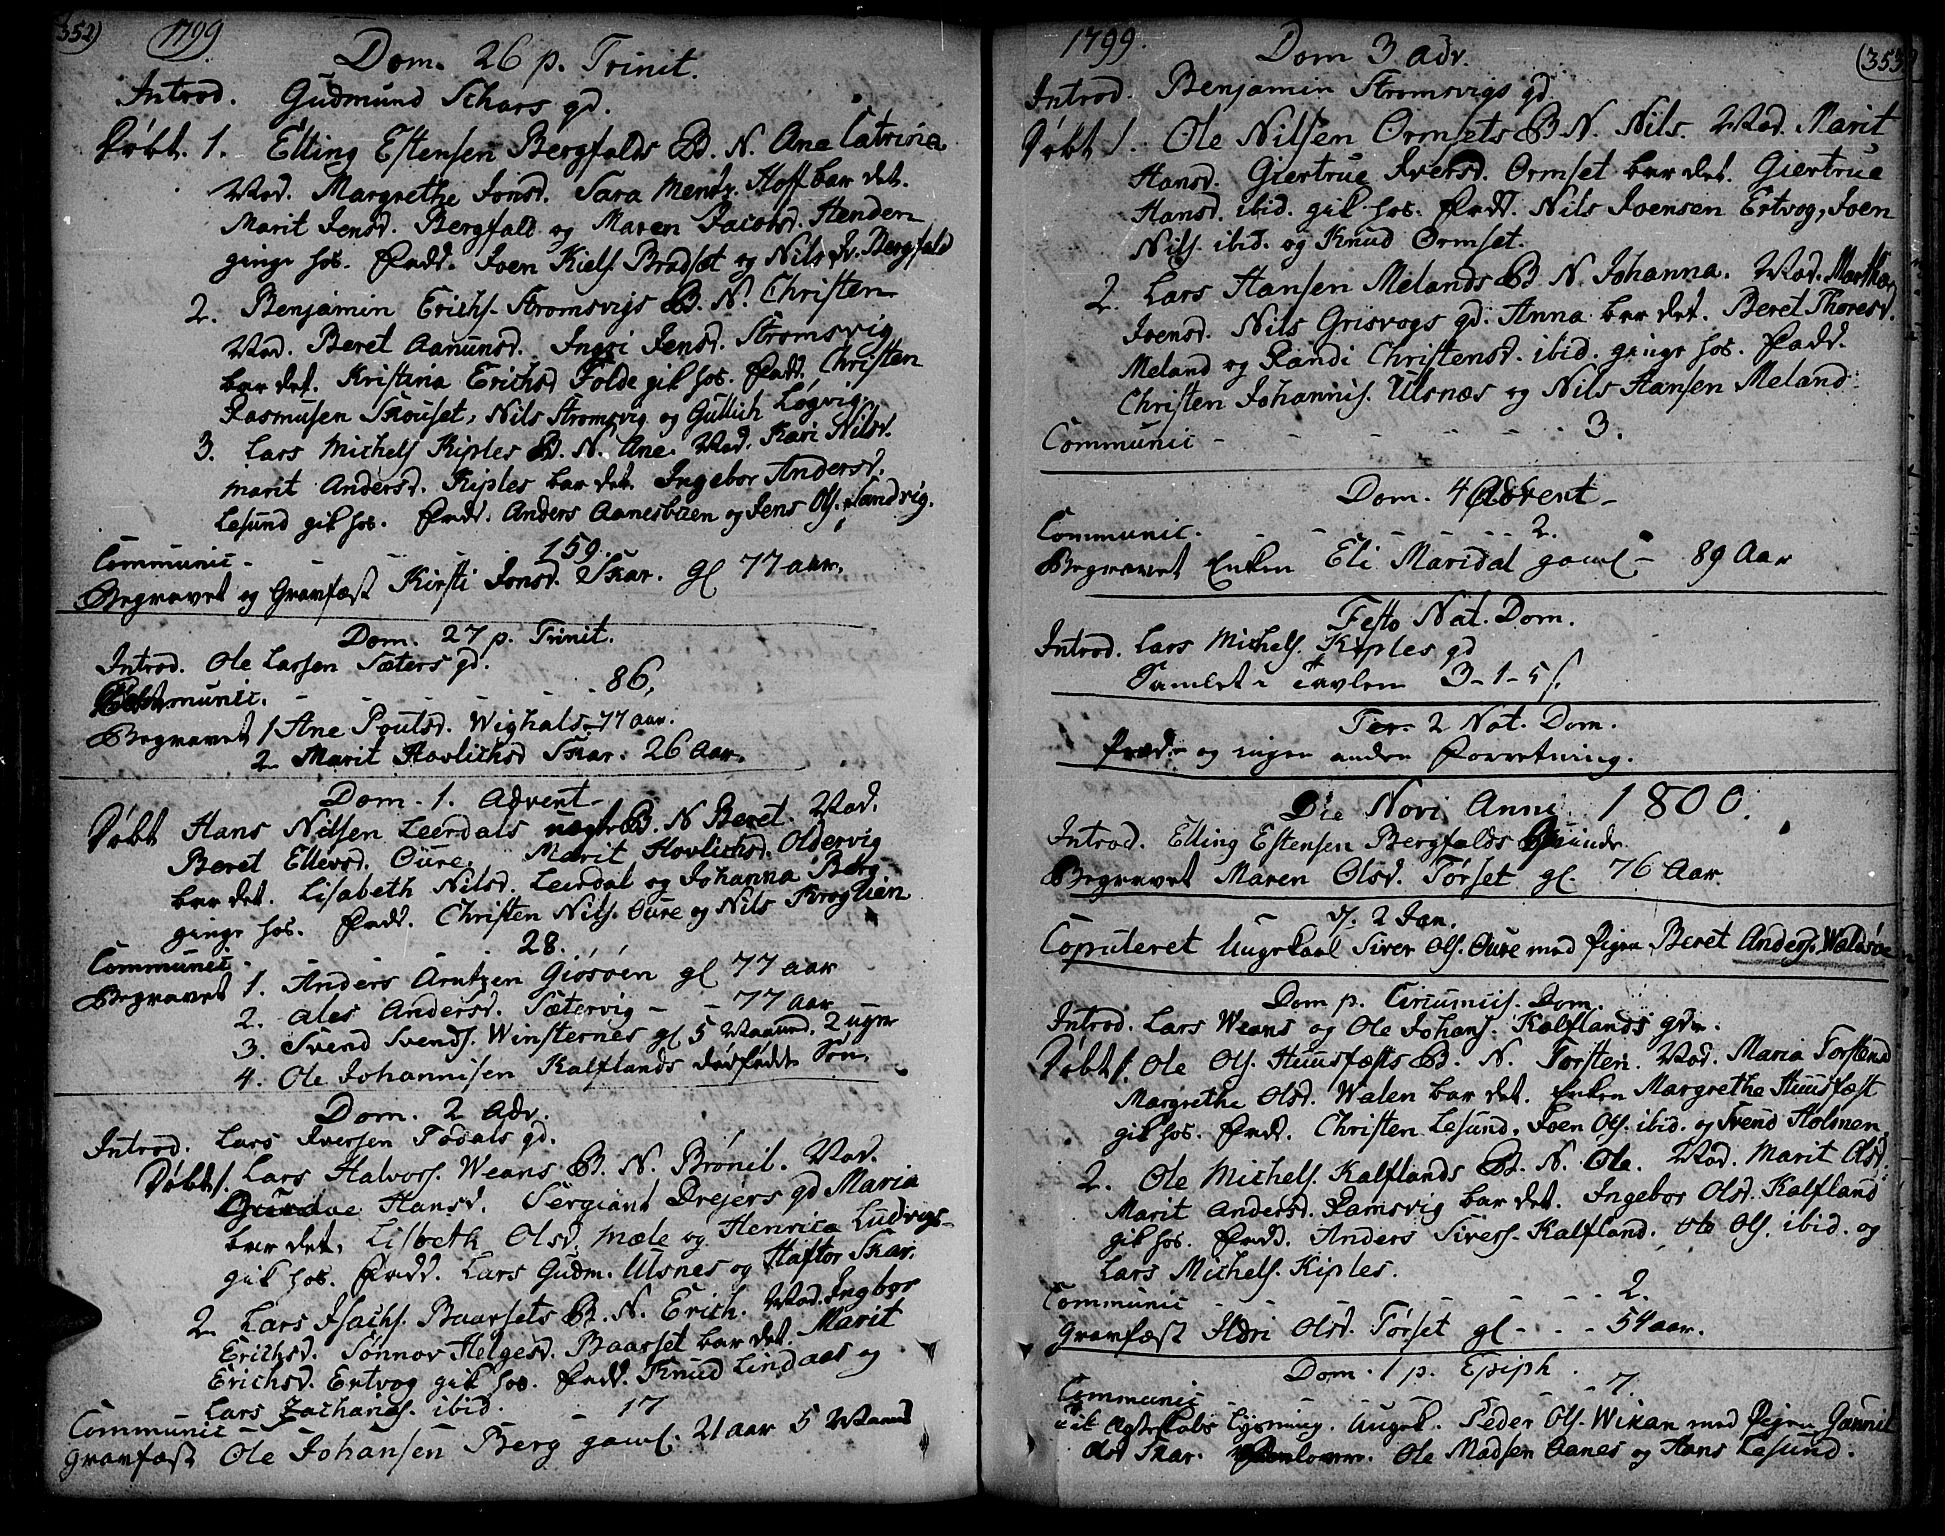 352) 1799
Dom. 26 p. Trinit.
Introd. Gudmund Schars gd.
Døbt. 1. Elling Estensen Bergfalds B. N. Ane Catrina
Mod. Margrethe Jonsd. Sara Mentz. Hoff bar det.
Marit Jensd. Bergfald og Maren Jacobsd. Henden
ginge hos. Fadd. Joen Kiels. Bradset og Nils Iv. Bergfald
2. Benjamin Erichs. Stromsvigs B. N. Christen
Mod. Beret Aanunsd. Ingri Jensd. Stromsvig
bar det. Kristina Erichsd Folde gik hos. Fadd. Christen
Rasmusen Skouset, Nils Stromsvig og Gullich Løgvig.
3. Lars Michels Kiples B. N. Ane. Mod. Kari Nilsd.
Marit Andersd. Kiples bar det. Ingebor Andersd.
Lesund gik hos. Fadd. Anders Aanesbuen og Jens Ols. Sandvig.
Communic - 159.
Begravet og Gravfæst Kirsti Jonsd. Skar. gl 77 aar.
Dom. 27 p. Trinit.
Introd. Ole Larsen Sæters gd.
Communic. - - - 86.
Begravet 1 Ane Poulsd. Wighals - 77 aar.
2. Marit Havlichsd Skar. 26 Aar.
Dom. 1. Advent -
Døbt Hans Nilsen Leerdals uegte B. N Beret. Mod.
Beret Ellevsd. Oure. Marit Hovlichsd. Oldervig
bar det. Lisabeth Nilsd. Leerdal og Johanna Berg
ginge hos. Fadd. Christen Nils. Oure og Nils Kroglien
Communic - 28.
Begravet 1. Anders Arntzen Giøsøen gl 77 aar
2. Ales Andersd. Sætervig - - 77 aar
3. Svend Svends. Winsternes gl 5 Maaned. 2 uger
4. Ole Johannisen Kalflands dødfødte Søn.
Dom. 2 Adv.
Introd. Lars Iversen Todals gd.
Døbt 1. Lars Halvors. Weans B. N. Brönil. Mod.
Hansd. Sergiant Drejers gd Maria
bar det. Lisbeth Olsd. Mæle og Henrica Ludvigs-
gik hos. Fadd. Lars Gudm. Ulsnes og Haftor Skar.
2. Lars Isachs. Baarsets B. N. Erich. Mod. Ingbor
Erichsd. Sonnov Helgesd. Baarset bar det. Marit
Erichsd. Ertvog gik hos. Fadd. Knud Lindaas og
Lars Zachariæs. ibid.
Communic - - - 17
Gravfæst Ole Johansen Berg gaml. 21 aar 5 Maaned
1799. 353
Dom 3 Adv.
Introd. Benjamin Stromsvigs gd
Døbt 1. Ole Nilsen Ormsets B N. Nils. Mod. Marit
Hansd. Giertrue Iversd. Ormset bar det. Giertrue
Hansd. ibid. gik hos. Fadd. Nils Joensen Ertvog, Joen
Nils. ibid. og Knud Ormset.
2. Lars Hansen Melands B N Johanna. Mod. Martha
Joensd. Nils Grisvogs gd. Anna bar det. Beret Thoresd.
Meland og Randi Christensd. ibid. ginge hos. Fadd.
Christen Johannis. Ulsnæs og Nils Hansen Meland.
Communic - - - - - 3.
Dom. 4 Advent -
Communic. - - - - 2.
Begravet Enken Eli Maridal gaml - 89 Aar
Festo Nat. Dom.
Introd. Lars Michels. Kiples gd
Samlet i Tavlen 3 - 1 - 5 s.
Fer. 2 Nat. Dom.
Præd. og ingen anden Forretning.
Die Novi Anni 1800.
Introd. Elling Estensen Bergfalds Qvinde
Begravet Maren Olsd. Torset gl. 76 Aar.
d. 2 Jan.
Copuleret Ungekarl Siver Ols. Oure med Pigen Beret Anders. Waldsøe
Dom p. Circumcis. Dom.
Introd. Lars Weans og Ole Johans. Kalflands gdr.
Døbt 1. Ole Ols. Huusfæsts B. N. Torsten. Mod. Maria Torstensd
Margrethe Olsd. Walen bar det. Enken Margrethe Huusfæst
gik hos. Fadd. Christen Lesund, Joen Ols. ibid. og Svend Holmen
2. Ole Michels. Kalflands B. N. Ole. Mod. Marit Olsd.
Marit Andersd. Ramsvig bar det. Ingebor Olsd. Kalfland
gik hos. Fadd. Anders Sivers. Kalfland. Ole Ols. ibid. og
Lars Michels. Kiples.
Communic - - - - 2.
Gravfæst Ildri Olsd. Torset gl - - - 54 aar.
Dom. 1 p. Epiph.
Communic - - - - 7.
Til Ægteskabs Lysning. Ungk. Peder Ols. Wikan med Pigen Gunnil
Olsd Skar. Ole Madsen Aanes og Hans Lesund.